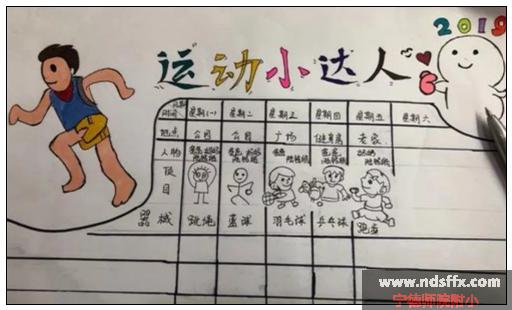 2019
运动小达人
时间 星期(一) 星期二 星期三 星期四 星期五 星期六
地点 公园 公园 广场 体育馆 老家
人物
项
目
器械 跳绳 篮球 羽毛球 乒乓球 跑步
www.ndsffx.com
宁德师院附小